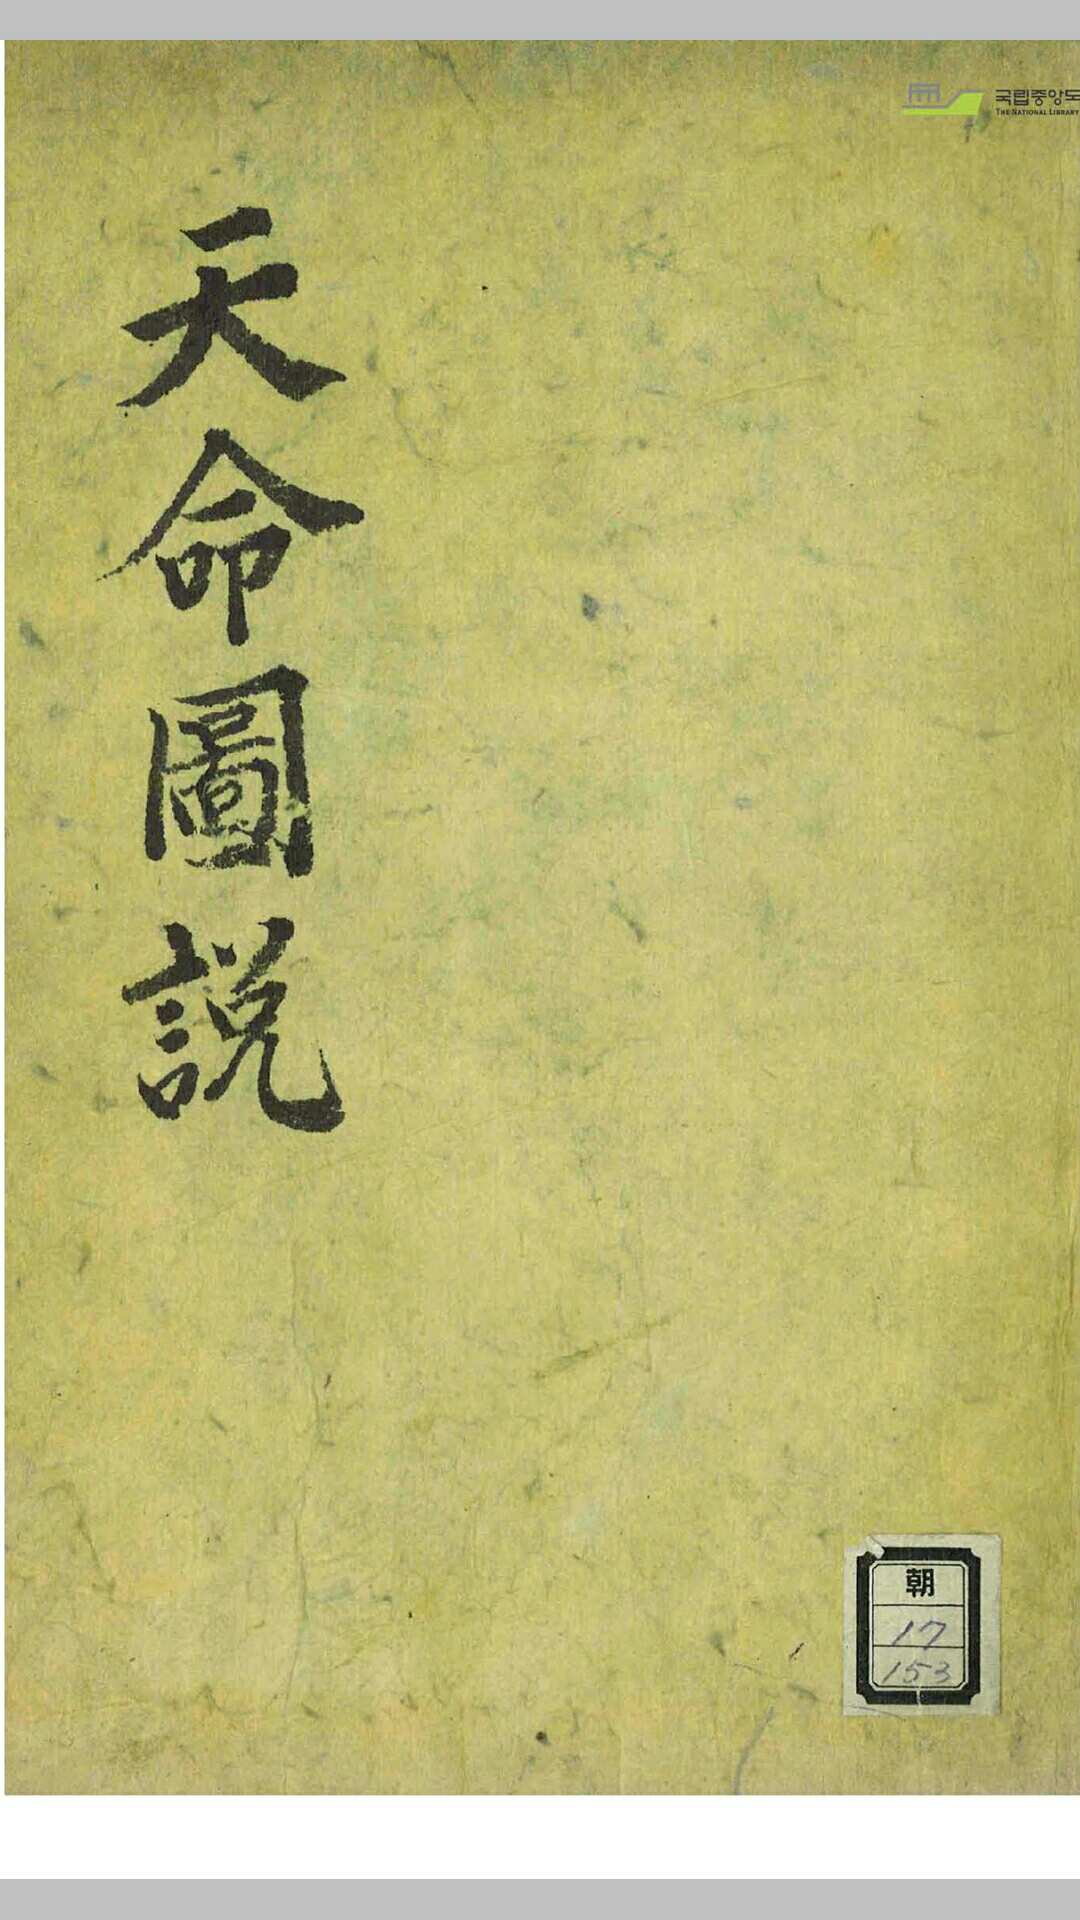 国립중앙도
THE NATIONAL LIBRARY
天命圖說
朝
17
153